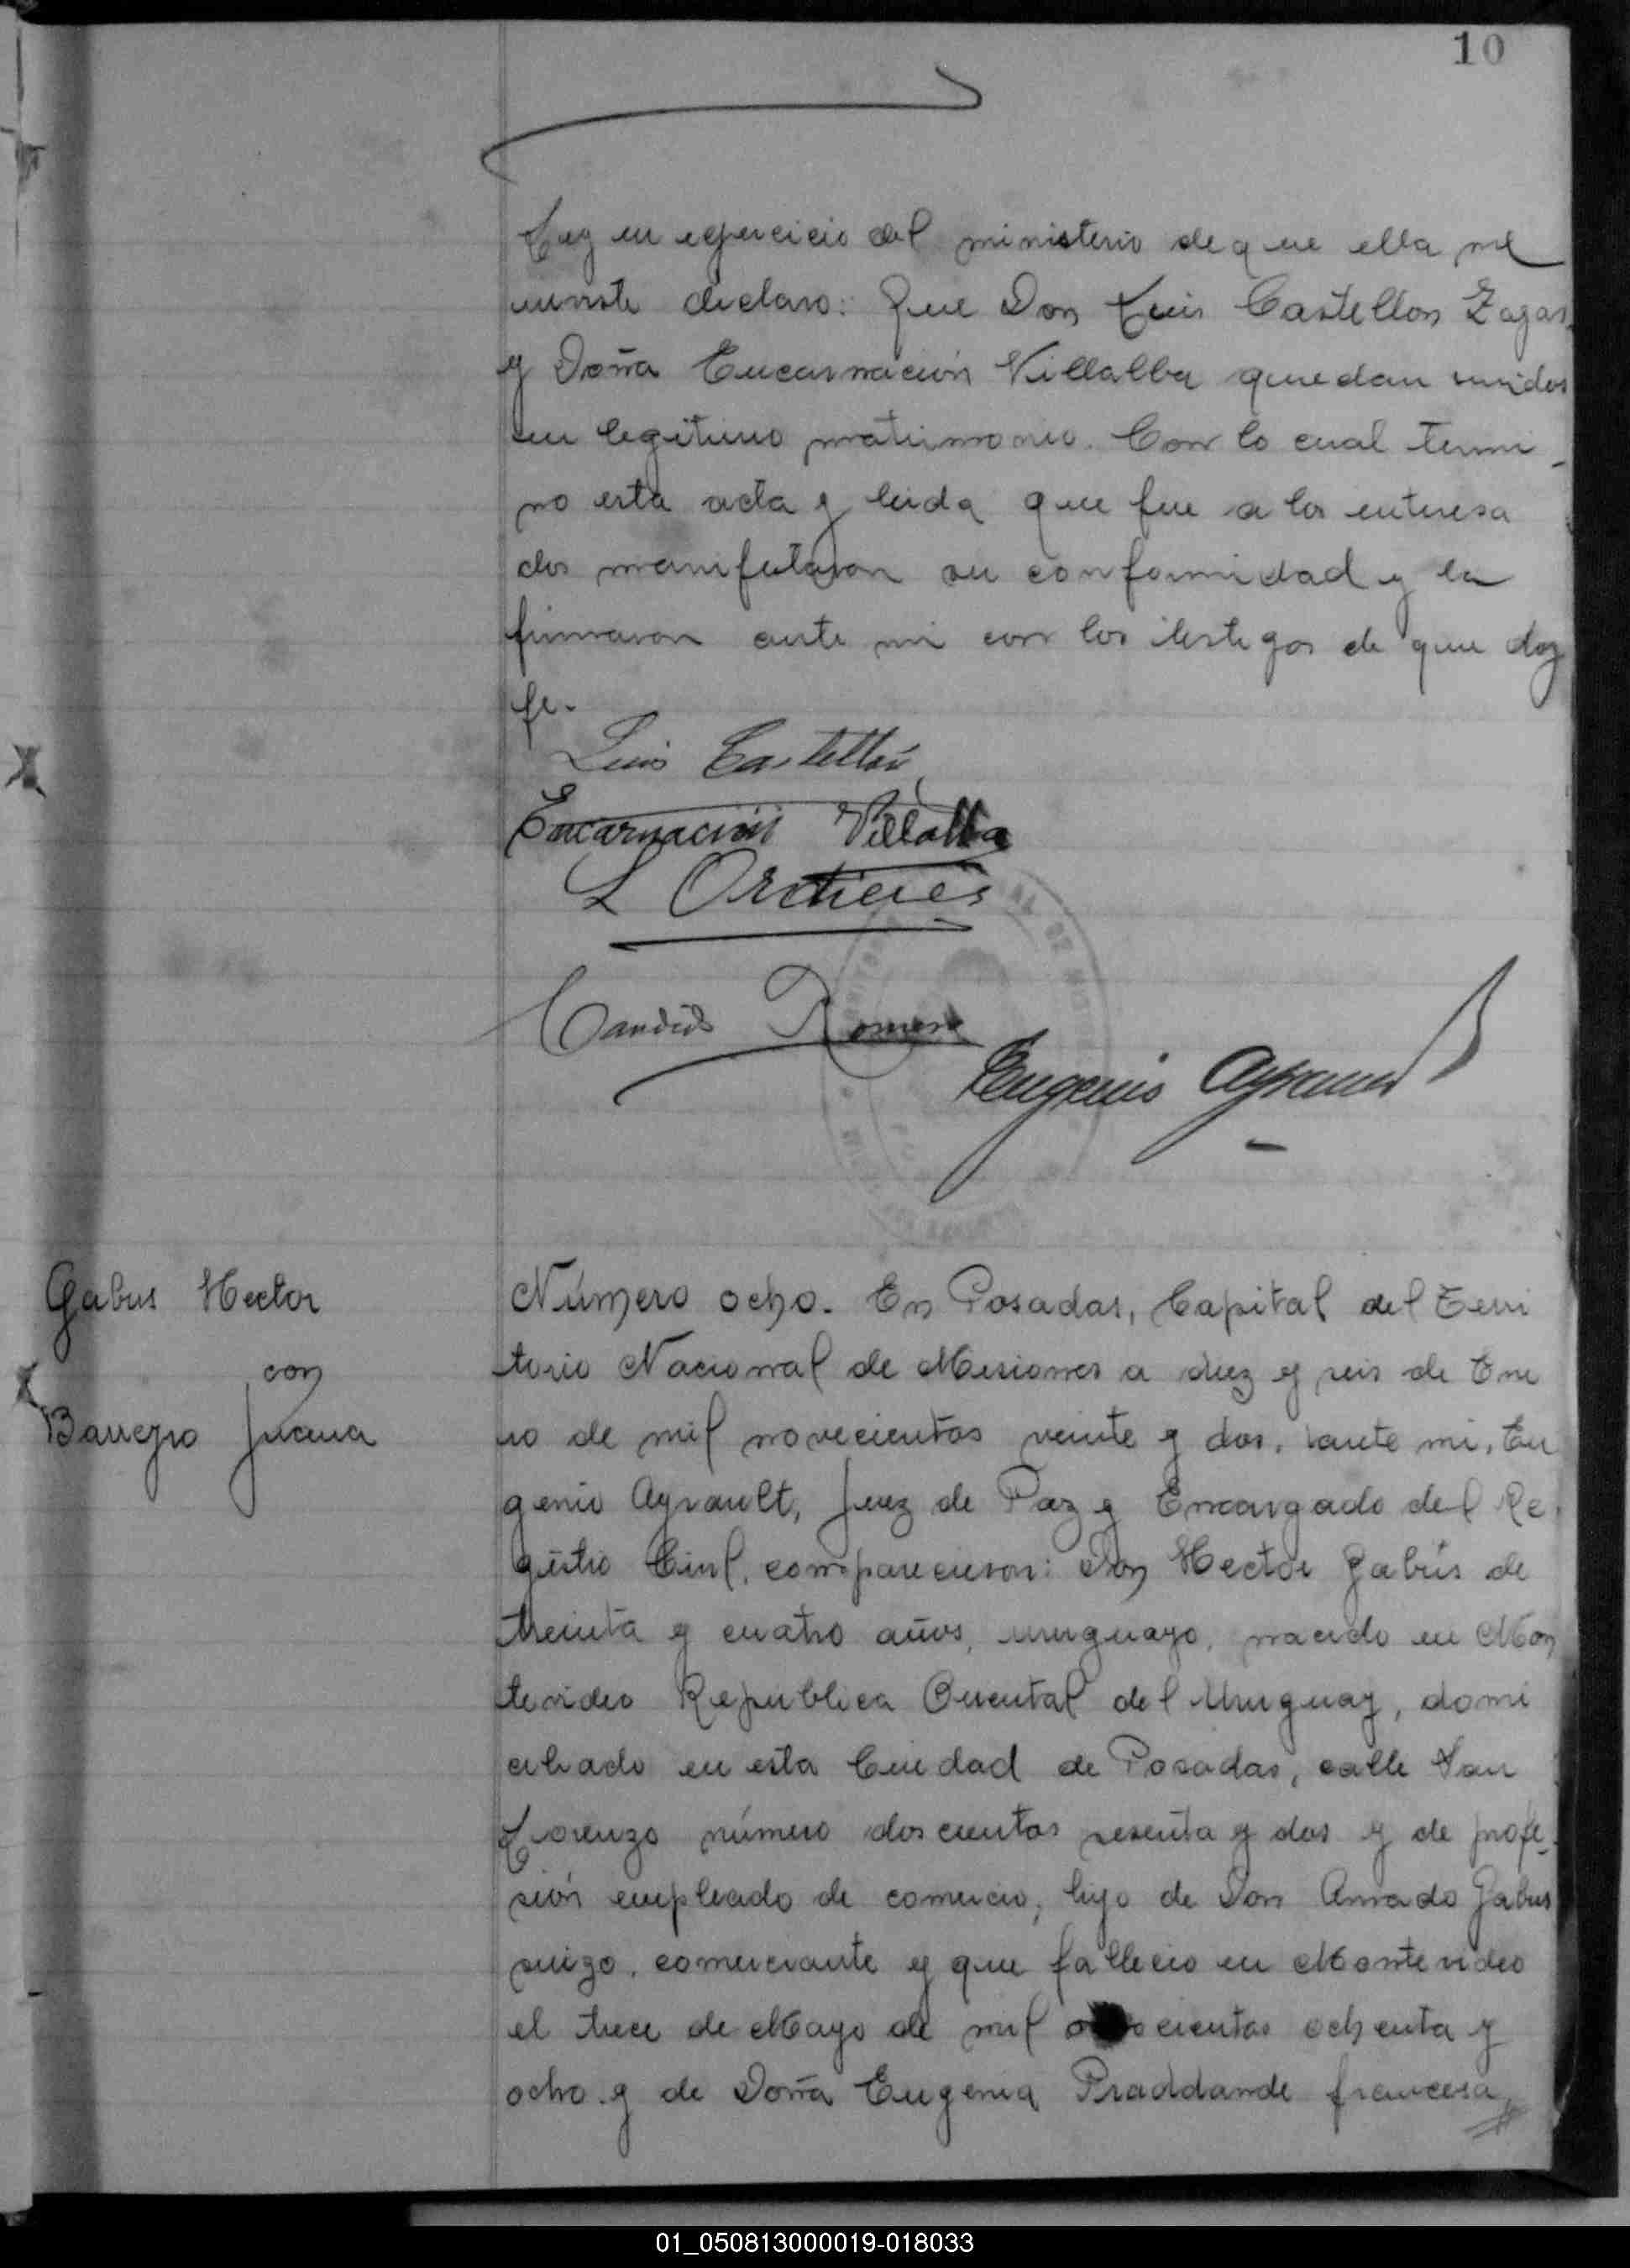 10
Ley en egercicio del ministerio de que ella me
inviste declaro: Que Don Luis Castellon Zagas,
y Doña Encarnación Villalba quedan unidos
en legitimo matrimonio. Con lo cual termi-
no esta acta y leida que fue a los interesa
dos manifestaron su conformidad y la
firmaron ante mi con los testigos de que doy
fe.
Luis Castellón
Encarnación Villalba
L
Candido Romero
Eugenio Ayrault
Gabus Hector
con
Barreyro Juana
Número ocho. En Posadas, Capital del Terri
torio Nacional de Misiones a diez y seis de Ene
ro de mil novecientos veinte y dos, ante mi, Eu
genio Ayrault, Juez de Paz y Encargado del Re
gistro Civil, comparecieron: Don Hector Gabús de
treinta y cuatro años, uruguayo, nacido en Mon
tevideo Republica Oriental del Uruguay, domi
ciliado en esta Ciudad de Posadas, calle San
Lorenzo número doscientos sesenta y dos y de profe-
sión empleado de comercio, hijo de Don Amado Gabus
suizo, comerciante y que fallecio en Montevideo
el trece de Mayo de mil ochocientos ochenta y
ocho y de Doña Eugenia Praddande francesa,
01_050813000019-018033